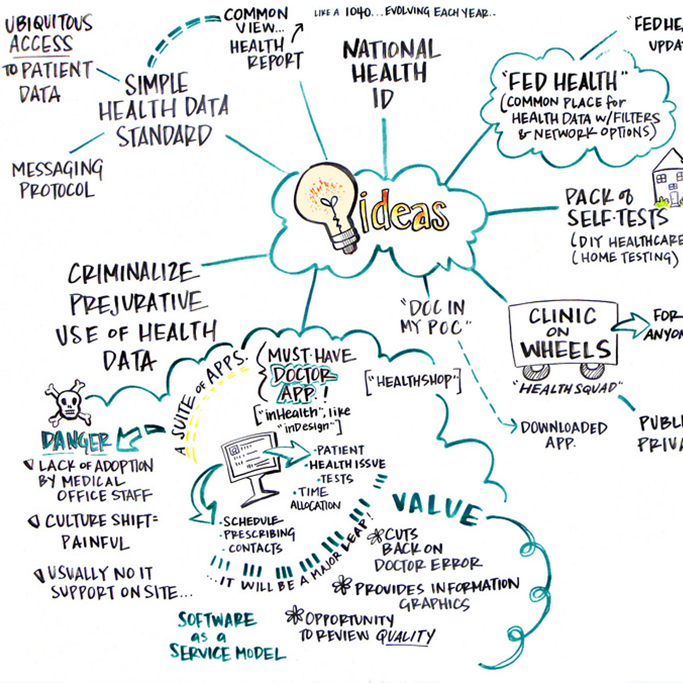 UBIQUITOUS
ACCESS
TO PATIENT
DATA
COMMON
VIEW...
HEALTH
REPORT
LIKE A 1040...EVOLVING EACH YEAR..
SIMPLE
HEALTH DATA
STANDARD
MESSAGING
PROTOCOL
NATIONAL
HEALTH
ID
"FED HEALTH"
(COMMON PLACE for
HEALTH DATA W/FILTERS
& NETWORK OPTIONS)
ideas
PACK of
SELF-TESTS
(DIY HEALTHCARE
(HOME TESTING)
CRIMINALIZE
PREJURATIVE
USE OF HEALTH
DATA
"DOC IN
MY POC"
DOWNLOADED
APP.
CLINIC
ON
WHEELS
"HEALTH SQUAD"
FOR
A SUITE of APPS.
MUST-HAVE
DOCTOR
APP.!
["inHealth", like
"inDesign"]
["HEALTHSHOP"]
• PATIENT
• HEALTH ISSUE
• TESTS
• TIME
ALLOCATION
• SCHEDULE
• PRESCRIBING
• CONTACTS
...IT WILL BE A MAJOR LEAP!
DANGER
LACK OF ADOPTION
BY MEDICAL
OFFICE STAFF
CULTURE SHIFT=
PAINFUL
USUALLY NO IT
SUPPORT ON SITE...
VALUE
CUTS
BACK ON
DOCTOR ERROR
PROVIDES INFORMATION
GRAPHICS
OPPORTUNITY
TO REVIEW QUALITY
SOFTWARE
as a
SERVICE MODEL